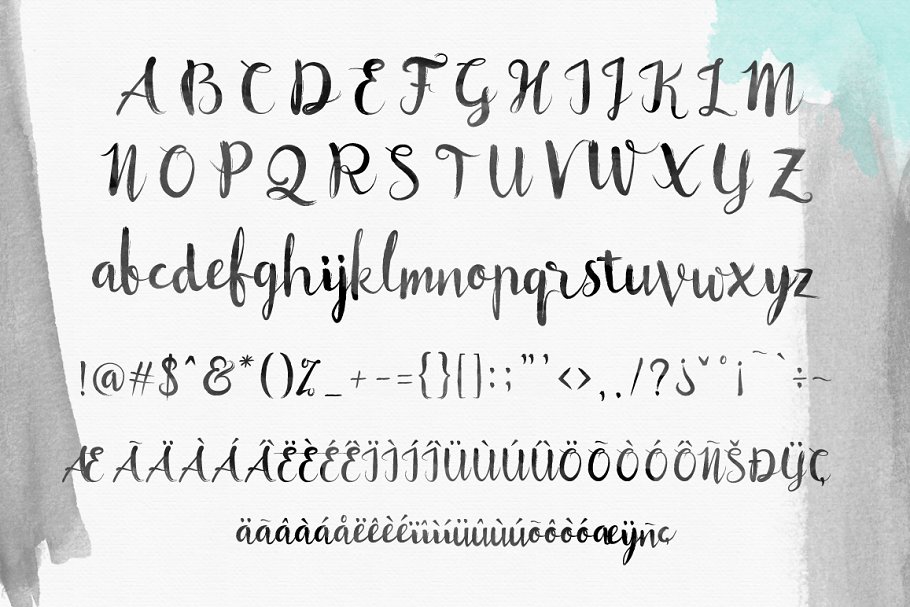 A B C D E F G H I J K L M
N O P Q R S T U V W X Y Z
abcdefghijklmnopqrstuvwxyz
!@#$^&*()%_+-={}[]:;"'<>,./?¿ˇ°¡¯`÷~
Æ Ã Ä À Á Â Ë È É Ê Ï Ì Í Î Ü Ù Ú Û Ö Õ Ò Ó Ô Ñ Š Ð Ÿ Ç
äãâàáåëêèéïîìíüûùúõôòóæÿñç